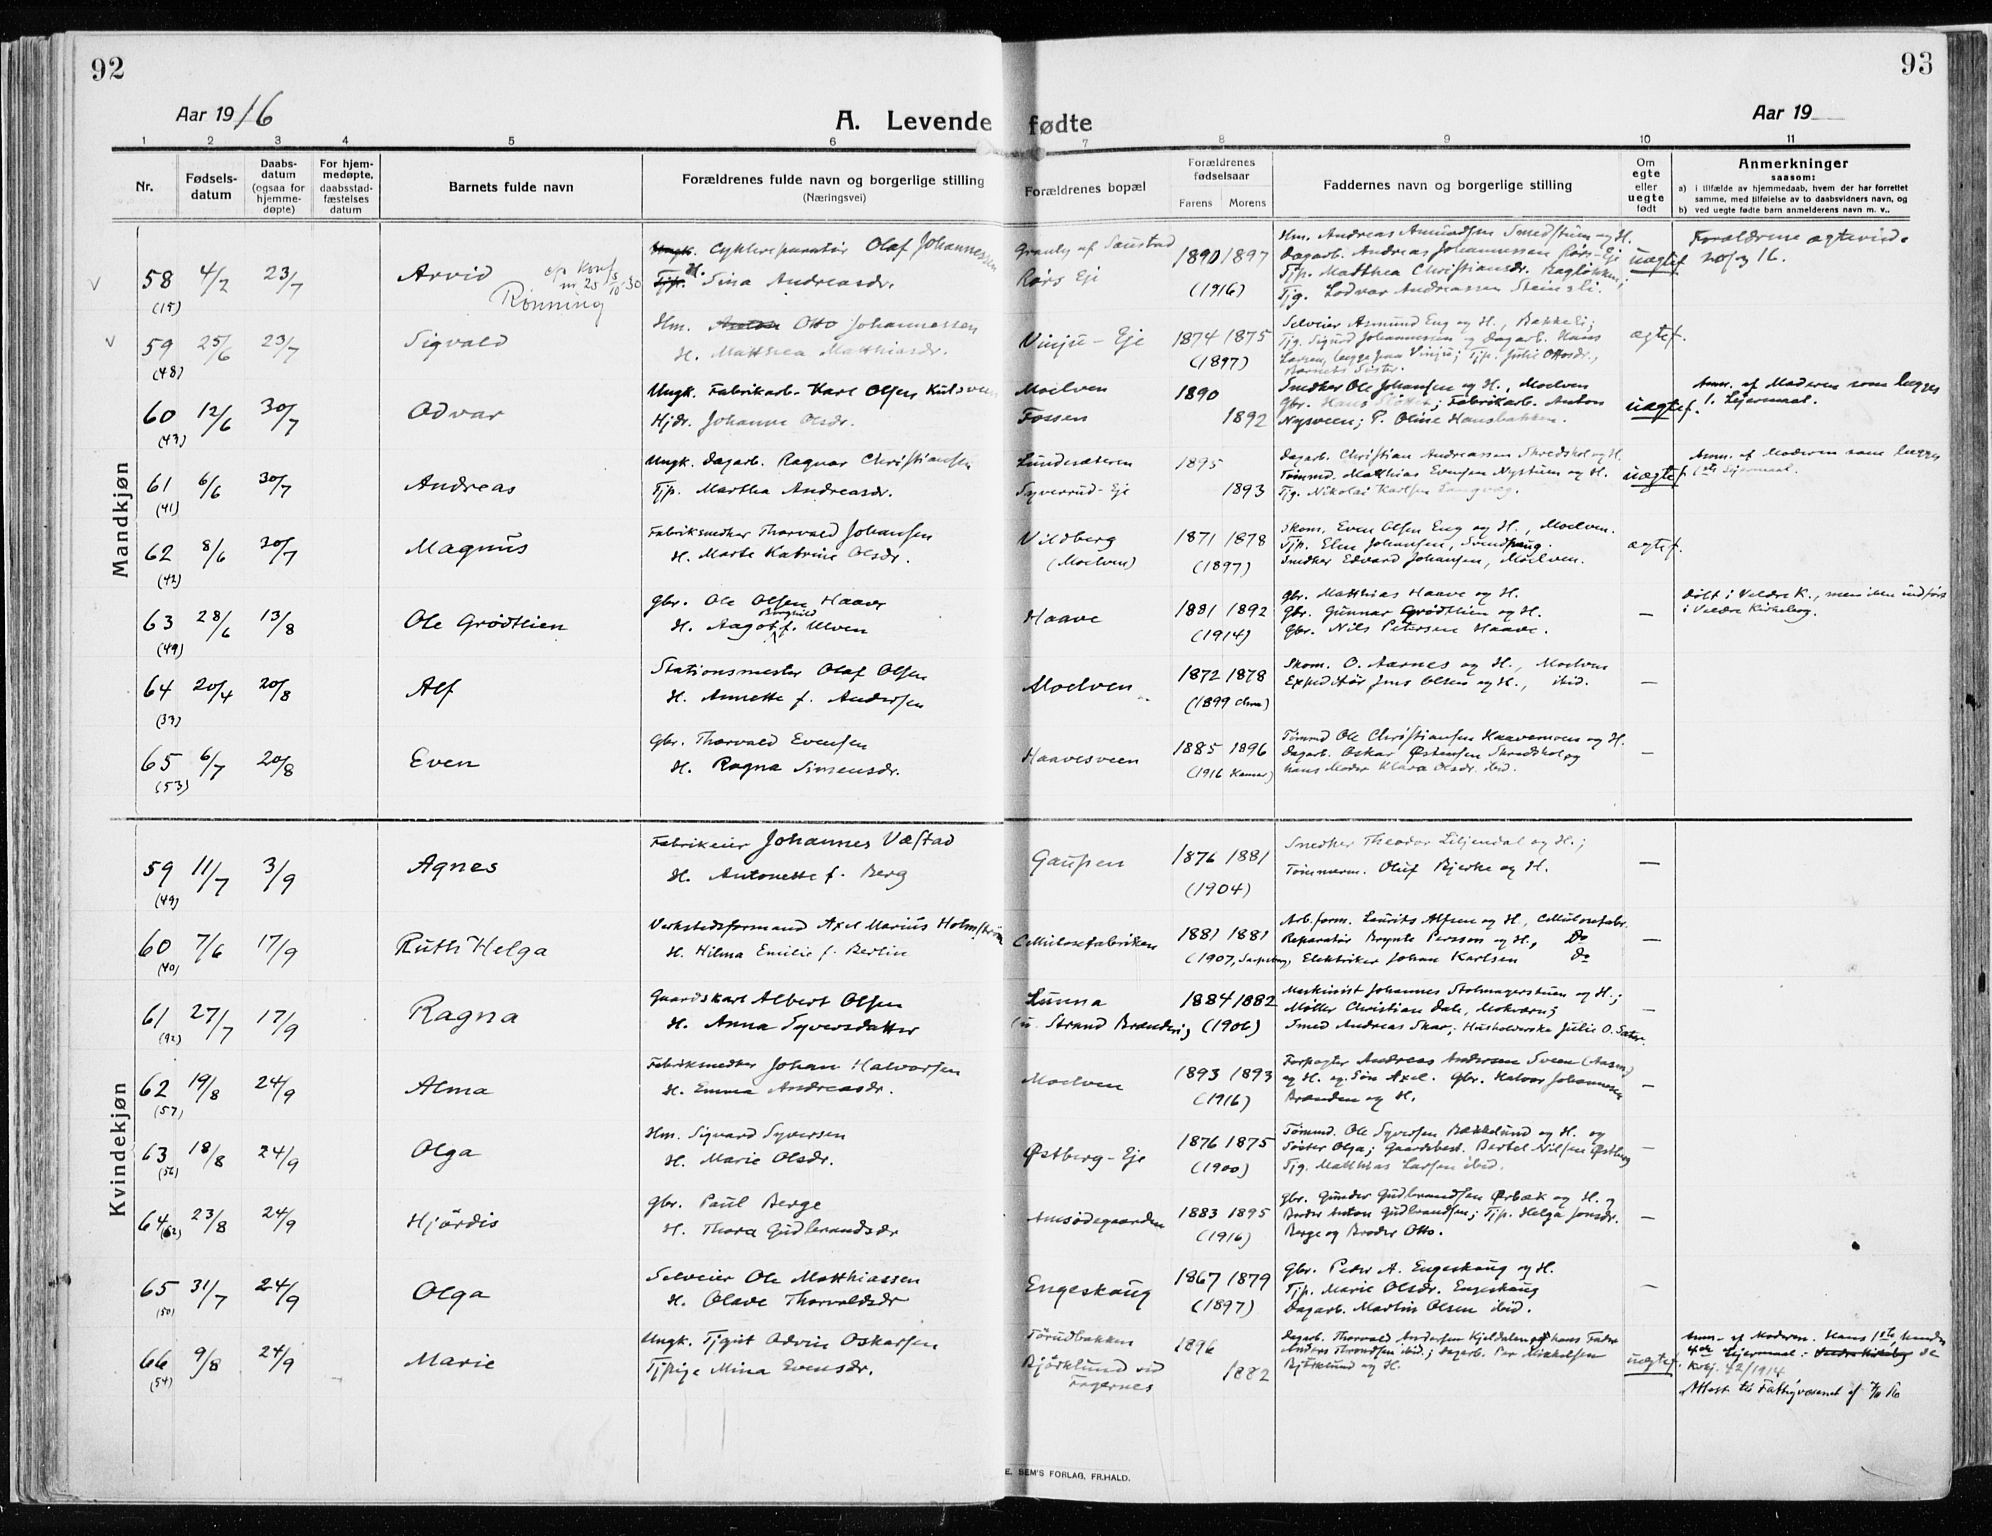 92
93
Aar 1916
A. Levende fødte
Aar 19
1 2 3 4 5 6 7 8 9 10 11
Nr.
Fødsels-
datum
Daabs-
datum
(ogsaa for
hjemme-
døpte)
For hjem-
medøpte,
daabsstad-
fæstelses
datum
Barnets fulde navn
Forældrenes fulde navn og borgerlige stilling
(Næringsvei)
Forældrenes bopæl
Forældrenes
fødselsaar
Farens Morens
Faddernes navn og borgerlige stilling
Om
egte
eller
uegte
født
Anmerkninger
saasom:
a) i tilfælde av hjemmedaab, hvem der har forrettet
samme, med tilføielse av to daabsvidners navn, og
b) ved uegte fødte barn anmelderens navn m. v..
Mandkjøn
58 4/2 23/7 Arvid
(15)
Rønning
Ungk. Cyklereparatör Olaf Johannessen
Tjp. H. Sina Andreasdr.
Rørs Eje
1890 1897
(1916)
Hm. Andreas Amundsen Smedstuen og H.
Dagarb. Andreas Johannessen Rørs-Eje
Tjp. Matthea Christiansdr. Bagløkken;
Tjg. Lodvar Andreassen Steinsli.
uægtef.
59 25/6 23/7 Sigvald
(48)
Hm. Anton Otto Johannessen
H. Matthea Matthiasdr.
Vinju-Eje
1874 1875
(1897)
Selveier Asmund Eng og H., Bakkeli;
Tjg. Sigurd Johannessen og Dagarb. Hans
Larsen, begge paa Vinju; Tjp. Julie Ottosdr.,
Barnets Søster.
ægtef.
60 12/6 30/7 Odvar
(43)
Ungk. Fabrikarb. Karl Olsen
Hjdr. Johanne Olsdr.
Moelven
Fossen
1890
1892
Smedker Ole Johansen og H., Moelven
Gbr. Hans; Fabrikarb. Anton
Nysveen; P. Oline Hansbakken.
uægtef.
Anm. af Moderen som begges
1. Lejermaal.
61 6/6 30/7 Andreas
(41)
Ungk. Dagarb. Ragnar Christiansen
Tjp. Martha Andreasdr.
Lundesæteren
Syverrud-Eje
1895
1893
Dagarb. Christian Andreassen Skredshol og H.
Tømmd. Matthias Evensen Nystuen og H.
Tjg. Nikolai Karlsen Langvæg.
uægtef.
Anm. af Moderen som begges
1ste Lejermaal.
62 8/6 30/7 Magnus
(42)
Fabriksmedker Thorvald Johansen
H. Marte Katrine Olsdr.
Vildberg
(Moelven)
1871 1878
(1897)
Skom. Even Olsen Eng og H., Moelven.
Tjp. Elne Johansen,
Smedker Edvard Johansen, Moelven.
ægtef.
63 28/6 13/8 Ole Grødtlien
(49)
Gbr. Ole Olsen Haave
Borghild
H. Aagot f. Ulven
Haave
1881 1892
(1914)
Gbr. Matthias Haave og H.
Gbr. Gunnar Grødtlien og H.
Gbr. Nils Petersen Haave.
—
Døbt i Veldre K., men ikke indført
i Veldre Kirkebog.
64 20/4 20/8 Alf
(33)
Stationsmester Olaf Olsen
H. Annette f. Andersen
Moelven
1872 1878
(1899 Chra)
Skom. O. Aarnes og H., Moelven
Expeditör Jens Olsen og H., ibid.
—
65 6/7 20/8 Even
(53)
Gbr. Thorvald Evensen
H. Ragna Simensdr.
Haavesveen
1885 1896
(1916)
Tømmd Ole Christiansen Haavemoen og H.
Dagarb. Oskar Østensen Skredshol og
hans Moder Klara Olsdr. ibid.
—
Kvindekjøn
59 11/7 3/9 Agnes
(49)
Fabrikeier Johannes Væstad
H. Antonette f. Berg
Gaupen
1876 1881
(1904)
Smedker Theodor Liljendal og H.;
Tömmerm. Oluf Bjerke og H.
—
60 7/6 17/9 Ruth Helga
(40)
Verkstedsformand Axel Marius Holmström
H. Hilma Emilie f. Berlin
Cellulosefabriken
1881 1881
(1907, Sarpsborg)
Arb.form. Laurits Alfsen og H., Cellulosefabr.
Reparatör Brynte Persson og H., Do
Elektriker Johan Karlsen Do
—
61 27/7 17/9 Ragna
(92)
Gaardskarl Albert Olsen
H. Anna Syversdatter
Lunna
(u. Strand Brænderi)
1884 1882
(1906)
Maskinist Johannes Stolmagerstuen og H.;
Møller Christian Dale, Mokværn;
Smed Andreas Skar; Husholderske Julie O. Sæter.
—
62 19/8 24/9 Alma
(57)
Fabriksmedker Johan Halvorsen
H. Emma Andreasdr.
Moelven
1893 1893
(1916)
Forpagter Andreas Andersen Sveen (Aasen)
og H. og Søn Axel. Gbr. Halvor Johannessen
Brænden og H.
—
63 18/8 24/9 Olga
(56)
Hm. Sigvard Syversen
H. Marie Olsdr.
Østberg-Eje
1876 1875
(1900)
Tømmd. Ole Syversen Bækkelund og H. og
Søster Olga; Gaardsbest. Bertel Nilsen Østberg
Tjg. Matthias Larsen ibid.
—
64 23/8 24/9 Hjördis
(62)
Gbr. Paul Berge
H. Thora Gudbrandsdr
Amsødegaarden
1883 1895
(1916)
Gbr. Gunder Gudbrandsen Ørbæk og H. og
Broder Anton Gudbrandsen; Tjp. Helga Jonsdr.
Berge og Broder Otto.
—
65 31/7 24/9 Olga
(50)
Selveier Ole Matthiassen
H. Olave Thorvaldsdr
Engeskaug
1867 1879
(1897)
Gbr. Peder A. Engeskaug og H.
Tjp. Marie Olsdr. Engeskaug
Dagarb. Martin Olsen ibid.
—
66 9/8 24/9 Marie
(54)
Ungk. Tjgut Odvin Oskarsen
Tjpige Mina Evensdr.
Tørudbakken
Bjørklund ved
Fagernes
1896
1882
Dagarb. Thorvald Andersen Kjeldalen og hans Fader
Anders Throndsen ibid.; Dagarb. Per Mikkelsen
Bjørklund og H.
uægtef.
Anm. af Moderen. Hans 1ste hendes
Lejermaal.
Kvkj. 42/1914
Attest til Fattigvæsenet
E. SEM'S FORLAG, FR.HALD.